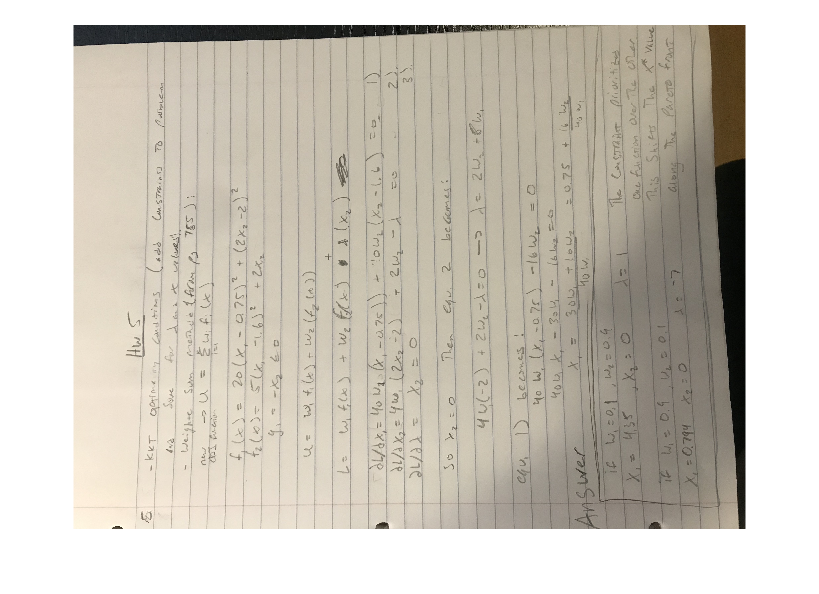 HW 5
5 - KKT optimality conditions (add constraints to problem
and solve for λ and x values:
- Weighted sum method (from pg 785):
new obj function → U = Σ wᵢ fᵢ(x)
i=1
f₁(x) = 20(x₁ - 0.75)² + (2x₂ - 2)²
f₂(x) = 5(x₁ - 1.6)² + 2x₂
g₁ = -x₂ ≤ 0
U = w₁ f₁(x) + w₂(f₂(x))
L = w₁ f₁(x) + w₂ f₂(x) + λ(x₂)
∂L/∂x₁ = 40w₁(x₁ - 0.75) + 10w₂(x₂ - 1.6) = 0 1)
∂L/∂x₂ = 4w₁(2x₂ - 2) + 2w₂ - λ = 0 2)
∂L/∂λ = x₂ = 0 3)
So x₂ = 0 Then equ 2 becomes:
4w(-2) + 2w₂ - λ = 0 → λ = 2w₂ + 8w₁
equ, 1) becomes:
40w₁(x₁ - 0.75) - 16w₂ = 0
40w₁x₁ - 30w₁ - 16w₂ = 0
x₁ = 30w₁ + 16w₂ / 40w₁ = 0.75 + 16w₂ / 40w₁
Answer
if w₁ = 0.1, w₂ = 0.9 The constraint priorities
x₁ = 4.35, x₂ = 0 λ = 1 one function over the other
This shifts the x* value
if w₁ = 0.9 w₂ = 0.1 along the pareto front
x₁ = 0.794 x₂ = 0 λ = -7